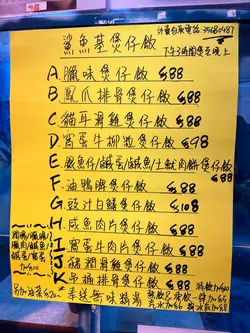 外賣自取電話:35680487
鯊魚基煲仔飯
下午3時開煲至晚上
A. 臘味煲仔飯 $88
B. 鳳爪排骨煲仔飯 $88
C. 雞煲仔飯 $88
D. 窩蛋牛柳粒煲仔飯 $98
E. 鹹魚仔/鹹蛋/鹹魚/土魷肉餅煲仔飯 $88
F. 油鴨髀煲仔飯 $88
G. 豉汁白鱔煲仔飯 $108
H. 咸魚肉片煲仔飯 $88
I. 窩蛋牛肉片煲仔飯 $88
J. 滑雞煲仔飯 $88
K. 排骨煲仔飯 $88
潤腸/臘腸/
臘肉/鹹魚/
鹹蛋/窩蛋
加$10
另加油菜$20